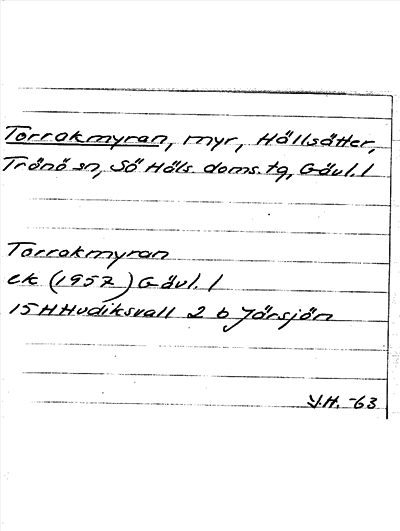 Torrakmyran, myr, Hällsätter,
Trönö sn, Sö Häls. doms. tg, Gävl. l
Torrakmyran
ek (1957) Gävl. l
15 H Hudiksvall 2 b Järsjön
Y.H. -63